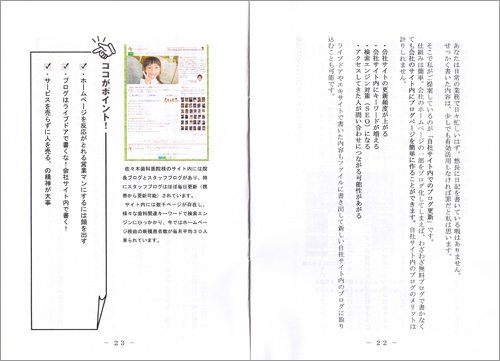 あなたは日常の業務で日々忙しいはず。悠長に日記を書いている暇はありません。
せっかく書いた内容は、少しでも有効活用しなければ罪だと私は思います。
そこで私がご提案しているのが「自社サイト内でのブログ更新」です。
仕組みは簡単。会社のホームページの一部をブログ化してしまえば、わざわざ無料ブログで書かなく
ても会社のサイト内にブログページを簡単に作ることができます。自社サイト内のブログのメリットは
計りしれません。
・会社サイトの更新頻度が上がる
・会社サイト内にキーワードが増える
・検索エンジン対策（SEO）になる
・アクセスしてきた人が問い合わせにつながる可能性があがる
ライブドアやエキサイトで書いた内容もファイルに書き出して新しい自社サイト内のブログに取り
込むことも可能です。
－ 22 －
佐々木歯科医院様のサイト内には院
長ブログとスタッフブログがあり、特
にスタッフブログはほぼ毎日更新（携
帯から更新可能）されています。
サイト内には数千ページが存在し、
様々な歯科関連キーワードで検索エン
ジンにひっかかり、今ではホームペー
ジ経由の新規患者数が毎月平均３０人
来られています。
ココがポイント！
・ホームページを反応がとれる営業マンにするには顔を出す
・ブログはライブドアで書くな！会社サイト内で書く！
・サービスを売らずに人を売る、の精神が大事
－ 23 －